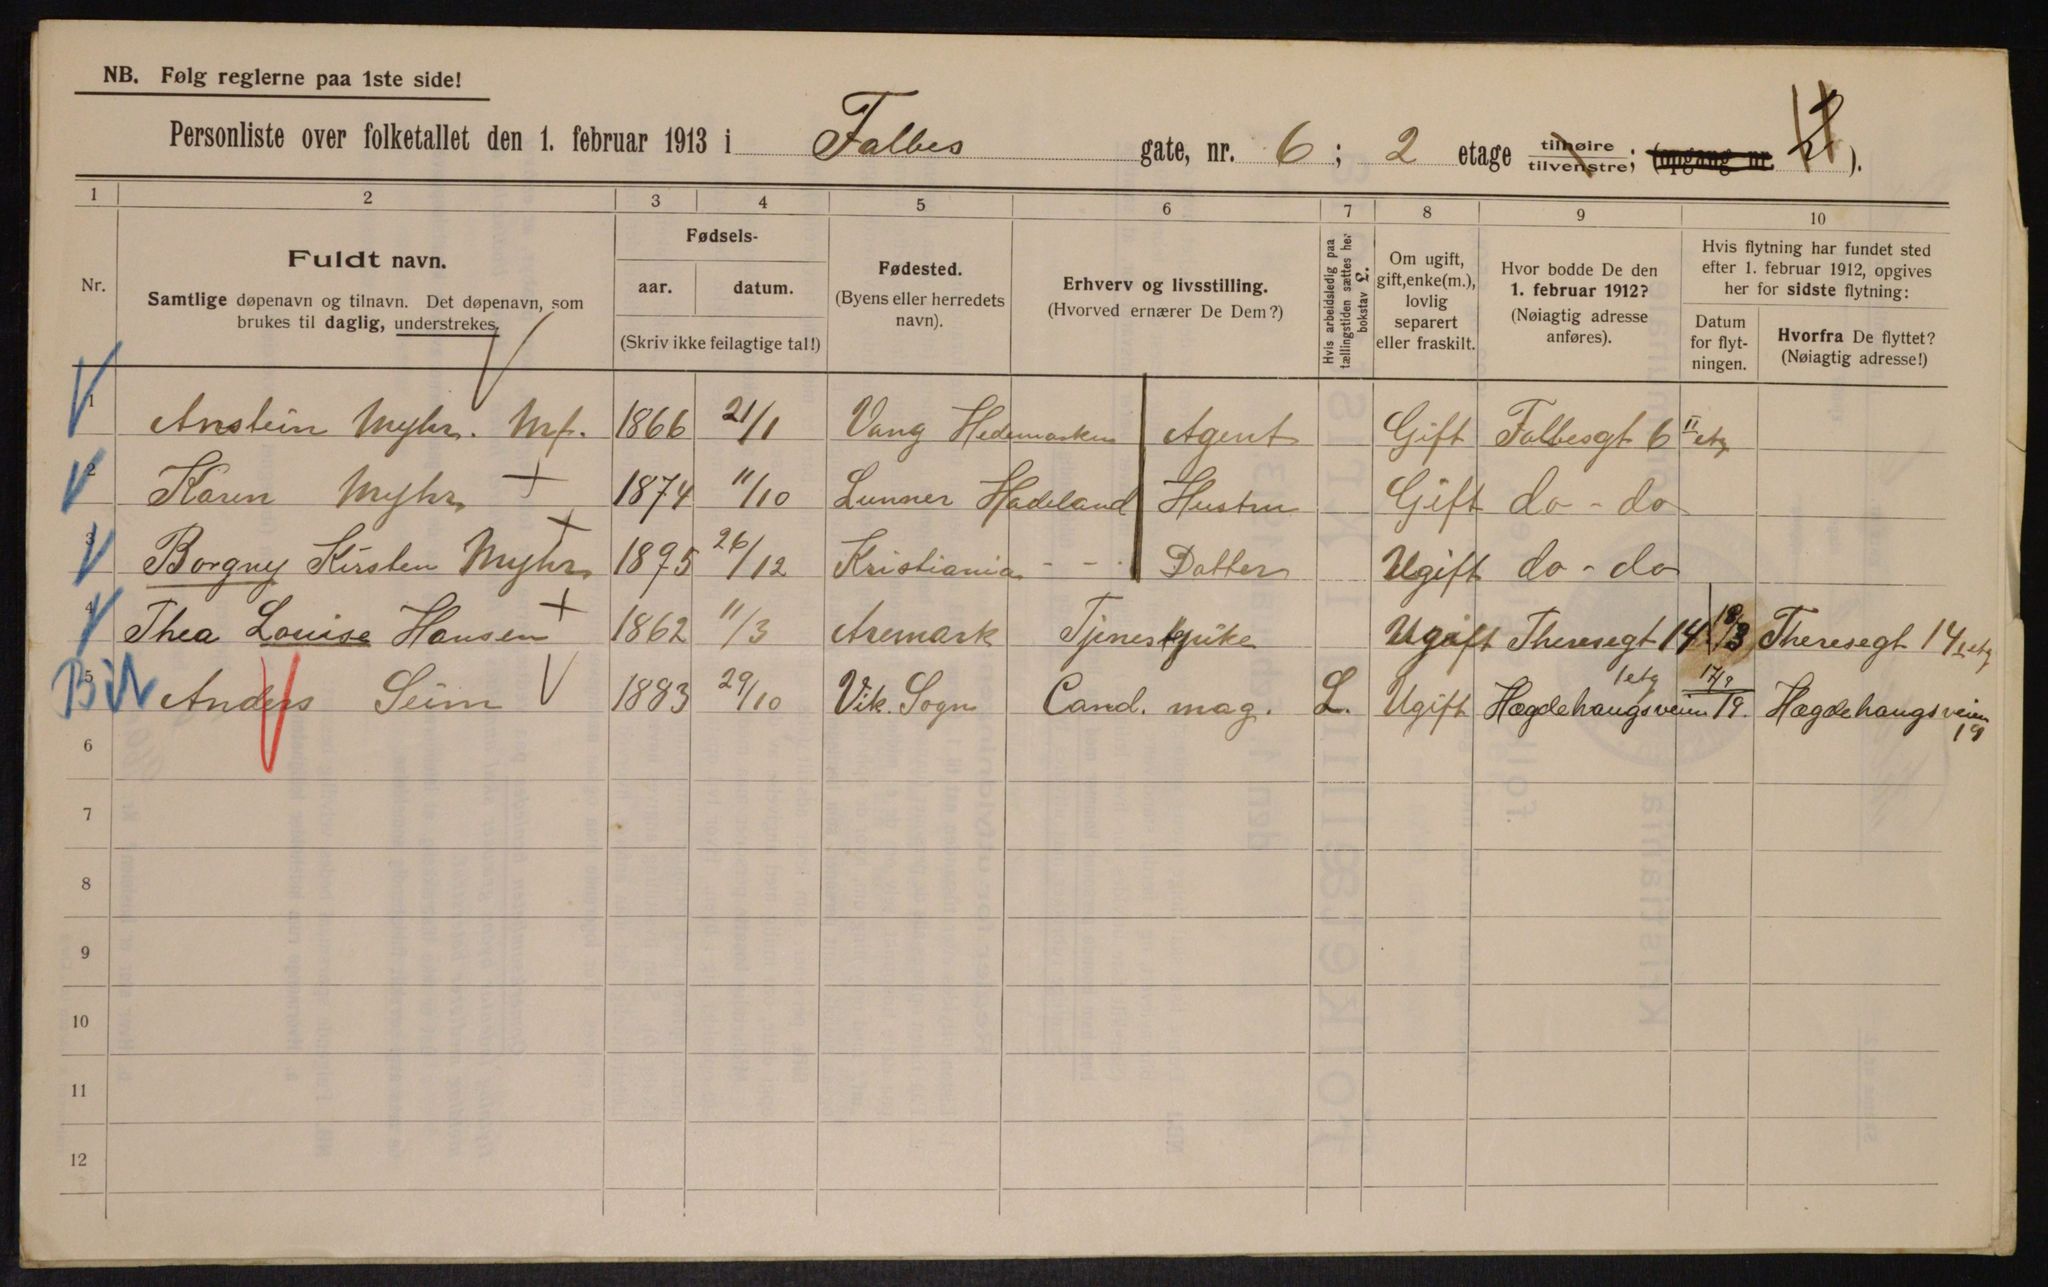 NB. Følg reglerne paa 1ste side!
Personliste over folketallet den 1. februar 1913 i Falbes gate, nr. 6; 2 etage tilhøire tilvenstre; (opgang nr. 2).
1 2 3 4 5 6 7 8 9 10
Nr.
Fuldt navn.
Samtlige døpenavn og tilnavn. Det døpenavn, som
brukes til daglig, understrekes.
Fødsels-
aar. datum.
(Skriv ikke feilagtige tal!)
Fødested.
(Byens eller herredets
navn).
Erhverv og livsstilling.
(Hvorved ernærer De Dem?)
Hvis arbeidsledig paa
tællingstiden sættes her
bokstav L.
Om ugift,
gift, enke(m.),
lovlig
separert
eller fraskilt.
Hvor bodde De den
1. februar 1912?
(Nøiagtig adresse
anføres).
Hvis flytning har fundet sted
efter 1. februar 1912, opgives
her for sidste flytning:
Datum
for flyt-
ningen.
Hvorfra De flyttet?
(Nøiagtig adresse!)
1 Anstein Myhr. Mf. 1866 21/1 Vang Hedemarken Agent Gift Falbesgt 6 II etg
2 Karen Myhr 1874 11/10 Lunner Hadeland Hustru Gift do - do
3 Borgny Kirsten Myhr 1895 26/12 Kristiania - - Datter Ugift do - do
4 Thea Louise Hansen 1862 11/3 Aremark Tjenestpike Ugift Theresegt 14 18/3 Theresegt 14 1 etg
5 Anders Seim 1883 29/10 Vik. Sogn Cand. mag. L. Ugift Hægdehaugsveien 19. 1 etg 17/9 Hægdehaugsveien 19
6
7
8
9
10
11
12